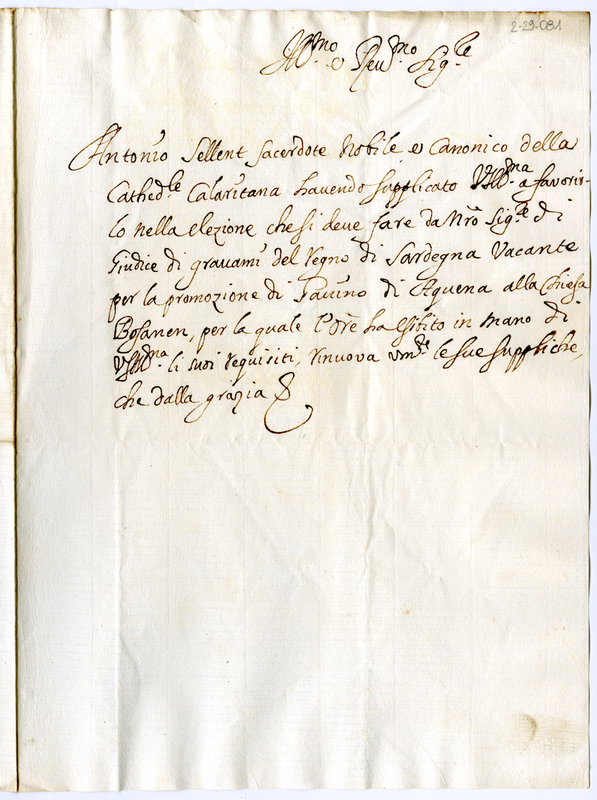 2-29-081
Ill.mo e Reu.mo Sig.re
Antonio Sellent Sacerdote Nobile e Canonico della
Cathed.le Calaritana hauendo supplicato VSIll.ma a fauorir-
lo nella elezione che si deve fare da Nrõ Sig.re di
Giudice di grauami del Regno di Sardegna Vacante
per la promozione di Gauino di Aquena alla Chiesa
Bosanen, per la quale l'Ore ha esibito in mano di
VSIll.ma li suoi requisiti, rinuoua um.te le sue suppliche,
che dalla grazia &